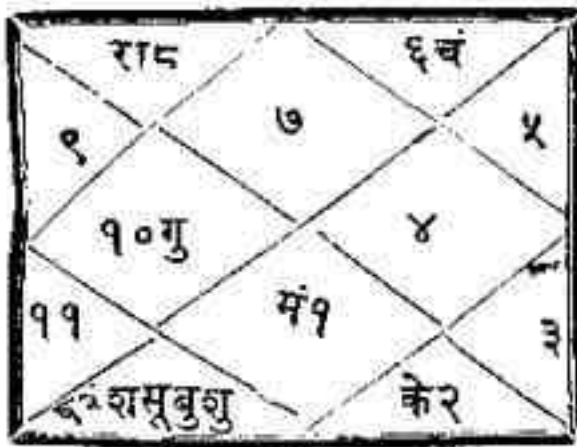 रा८
६चं
७
९
५
१०गु
४
११
मं१
३
१२शसूबुशु
के२